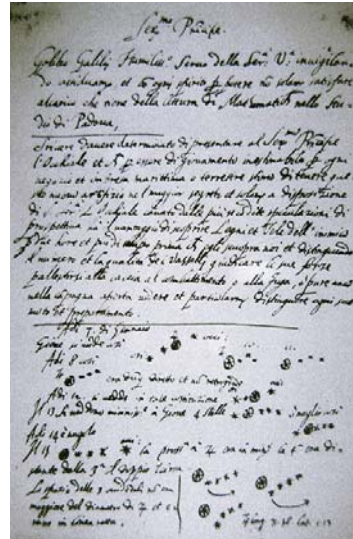 Ser.mo Principe.
Galileo Galilei Humiliss.o Servo della Ser.a V.a invigilan-
do assiduam.te et co ogni spirito p potere no solam.te satisfare
alcarico che tiene della lettura di Matematiche nello Stu-
dio di Padova,
Scrivere davere determinato di presentare al Ser.mo Principe
l'Occhiale et p essere di giovamento inestimabile p ogni
negocio et impresa marittima o terrestre stimo di tenere que-
sto nuovo artifizio nel maggior segreto et solam.te a disposizione
di S. Ser.a L'Occhiale cavato dalle più recondite speculazioni di
prospettiva ha il vantaggio di scoprire Legni et Vele dell'inimico
p due hore et più di tempo prima che egli scuopra noi et distinguendo
il numero et la qualità dei Vasselli giudicare le sue forze
pallestirsi alla caccia al combattimento o alla fuga, o pure anco
nella campagna aperta vedere et particolarm.te distinguere ogni suo
moto et preparamento.
Adi 7. di Gennaio
Giove si vedde così
Adi 8 così
Adi 12. si vedde in tale costituzione
Il 13 si veddero vicinissime a Giove 4 stelle
Adi 14 è nugolo
Il 15
Lo spazio delle 3 occidentali no era
maggiore del diametro di 4 et e-
rano in linea retta.